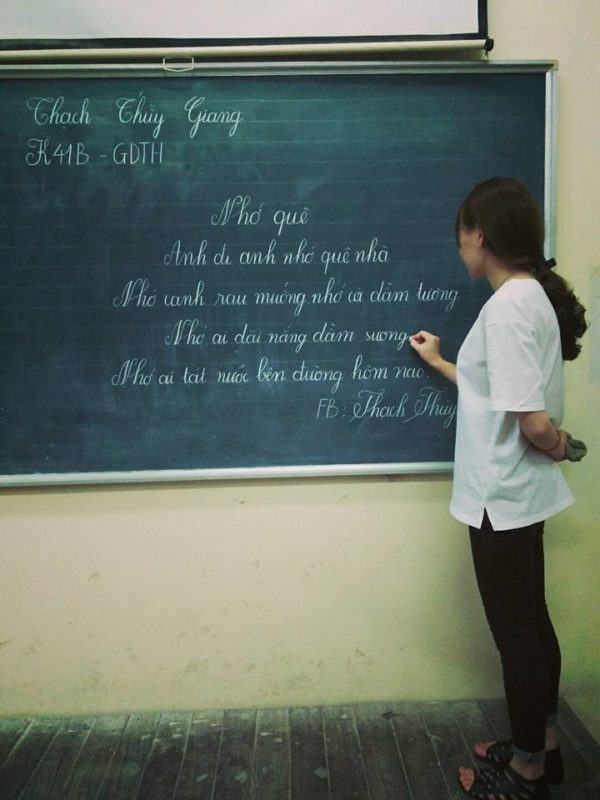 Thạch Thùy Giang
K41B - GDTH
Nhớ quê
Anh đi anh nhớ quê nhà
Nhớ canh rau muống nhớ cà dầm tương
Nhớ ai dãi nắng dầm sương
Nhớ ai tát nước bên đường hôm nao.
FB: Thạch Thùy